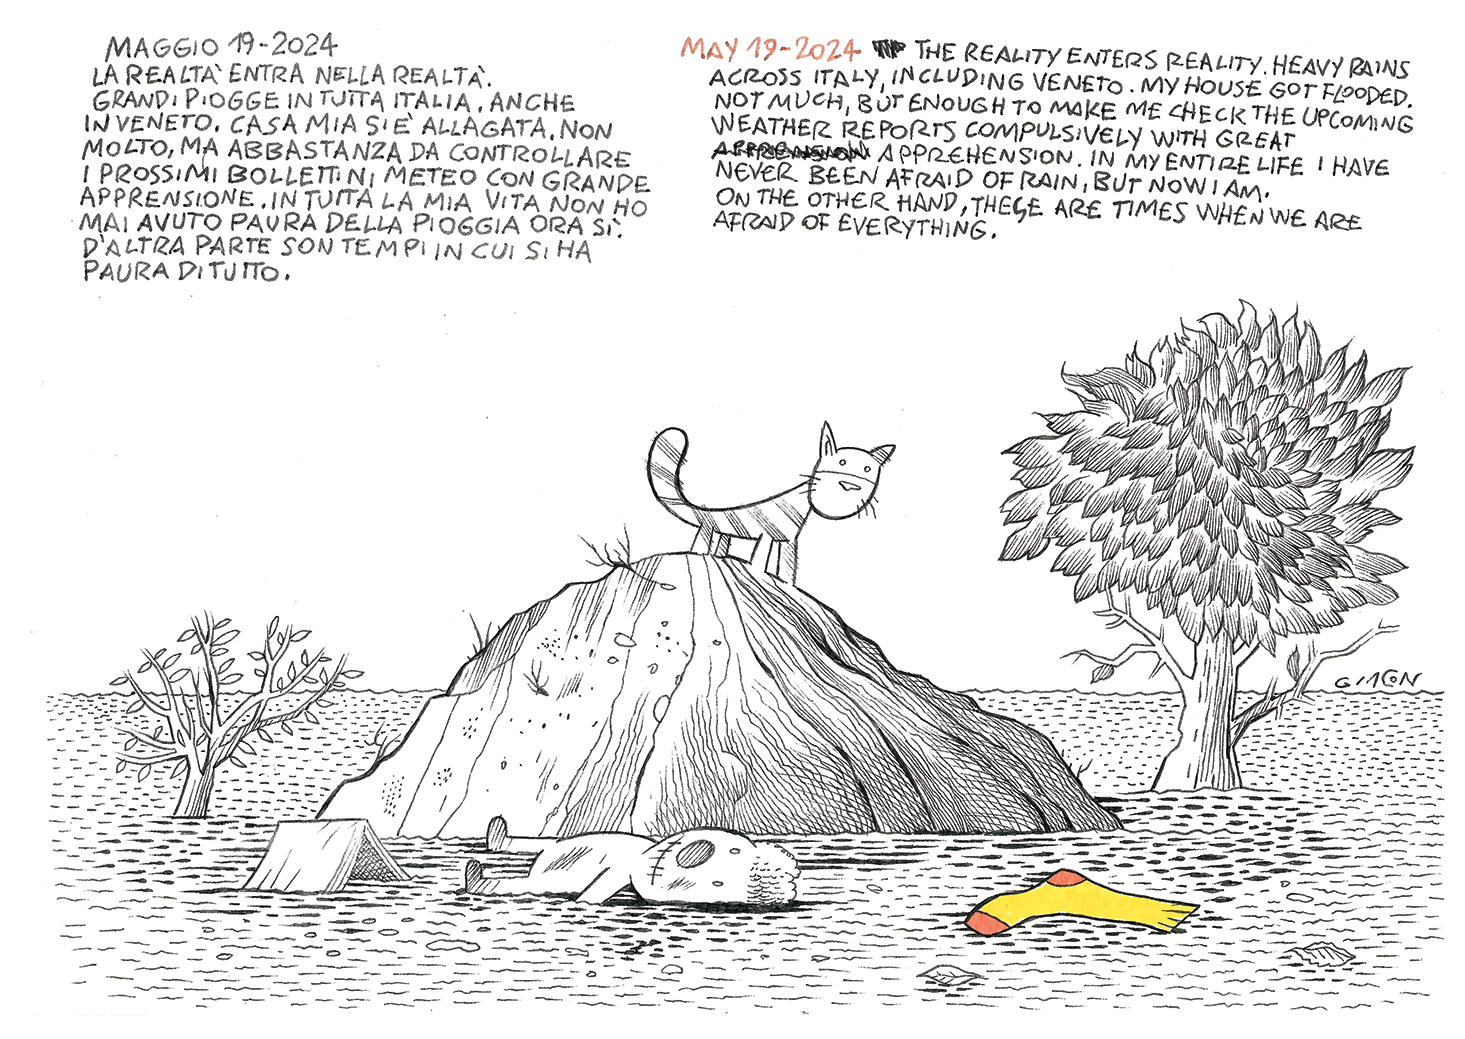 MAGGIO 19-2024
LA REALTA' ENTRA NELLA REALTA'.
GRANDI PIOGGE IN TUTTA ITALIA. ANCHE
IN VENETO. CASA MIA SI E' ALLAGATA. NON
MOLTO, MA ABBASTANZA DA CONTROLLARE
I PROSSIMI BOLLETTINI METEO CON GRANDE
APPRENSIONE. IN TUTTA LA MIA VITA NON HO
MAI AVUTO PAURA DELLA PIOGGIA ORA SI'.
D'ALTRA PARTE SON TEMPI IN CUI SI HA
PAURA DI TUTTO.
MAY 19-2024 THE REALITY ENTERS REALITY. HEAVY RAINS
ACROSS ITALY, INCLUDING VENETO. MY HOUSE GOT FLOODED.
NOT MUCH, BUT ENOUGH TO MAKE ME CHECK THE UPCOMING
WEATHER REPORTS COMPULSIVELY WITH GREAT
APPREHENSION. IN MY ENTIRE LIFE I HAVE
NEVER BEEN AFRAID OF RAIN, BUT NOW I AM.
ON THE OTHER HAND, THESE ARE TIMES WHEN WE ARE
AFRAID OF EVERYTHING.